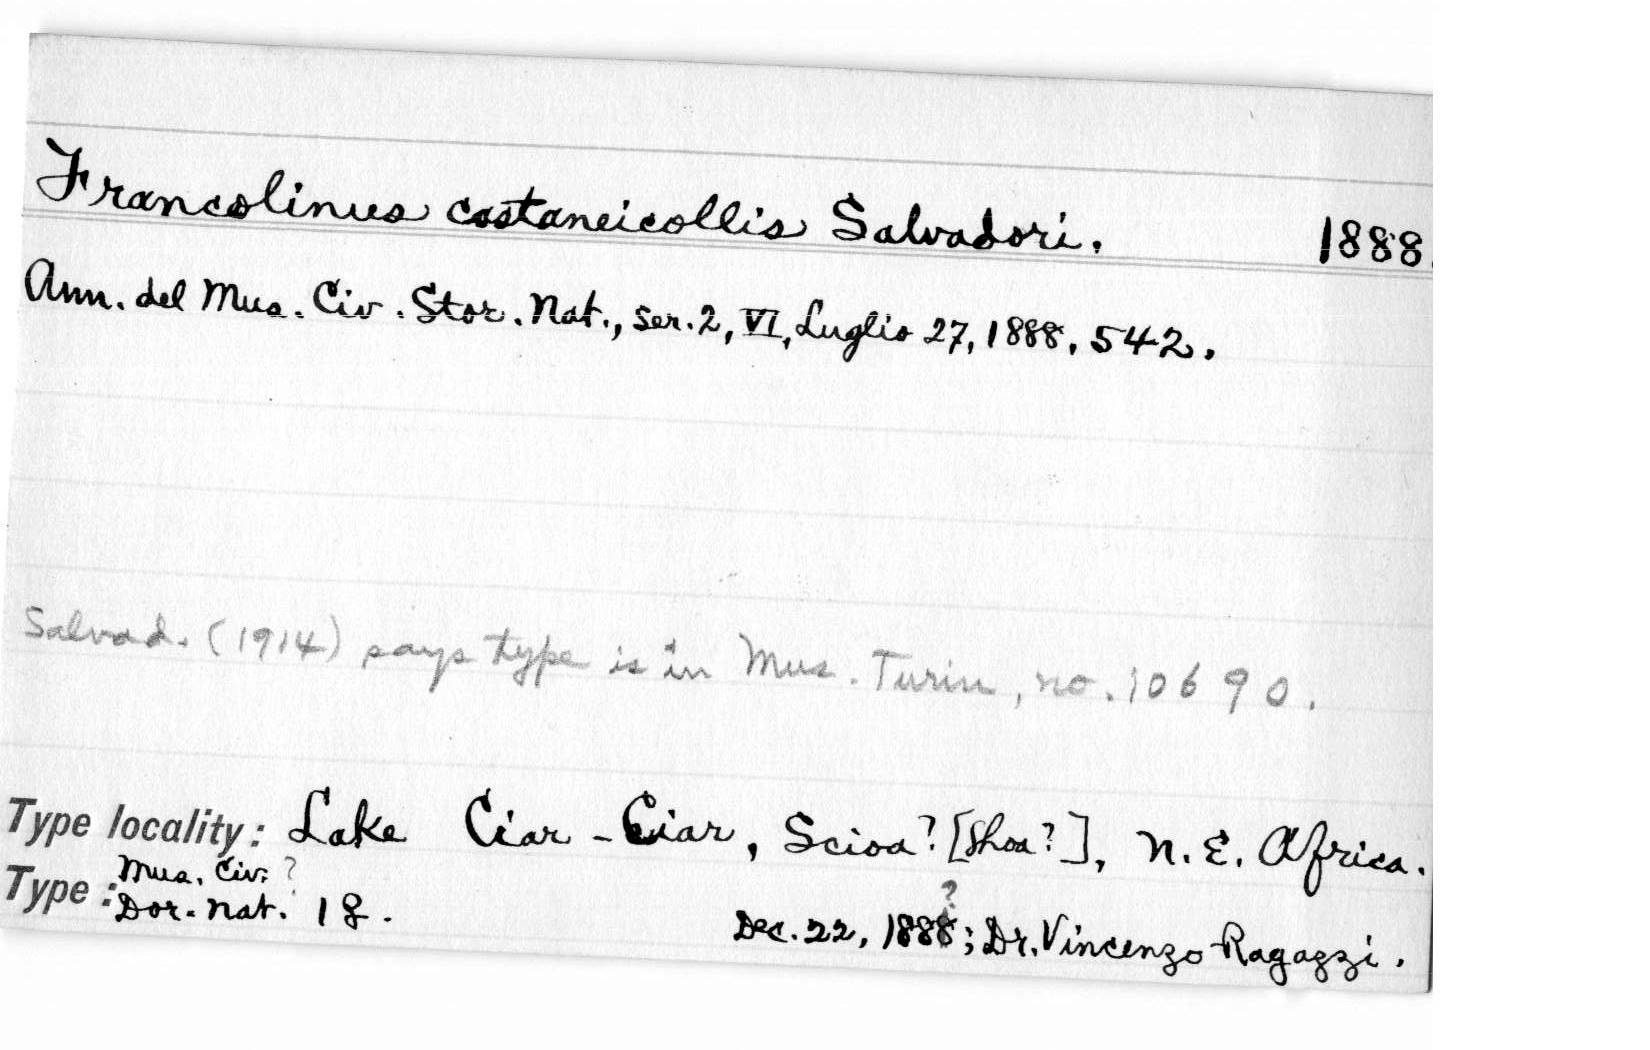 Francolinus castaneicollis Salvadori. 1888.
Ann. del Mus. Civ. Stor. Nat., ser. 2, VI, Luglio 27, 1888, 542.
Salvad. (1914) says type is in Mus. Turin, no. 10690.
Type locality: Lake Ciar-Ciar, Scioa? [Shoa?], N. E. Africa.
Mus. Civ. ?
Type: Dor. Nat. 1 ♀. Dec. 22, 1888?; Dr. Vincenzo Ragazzi.